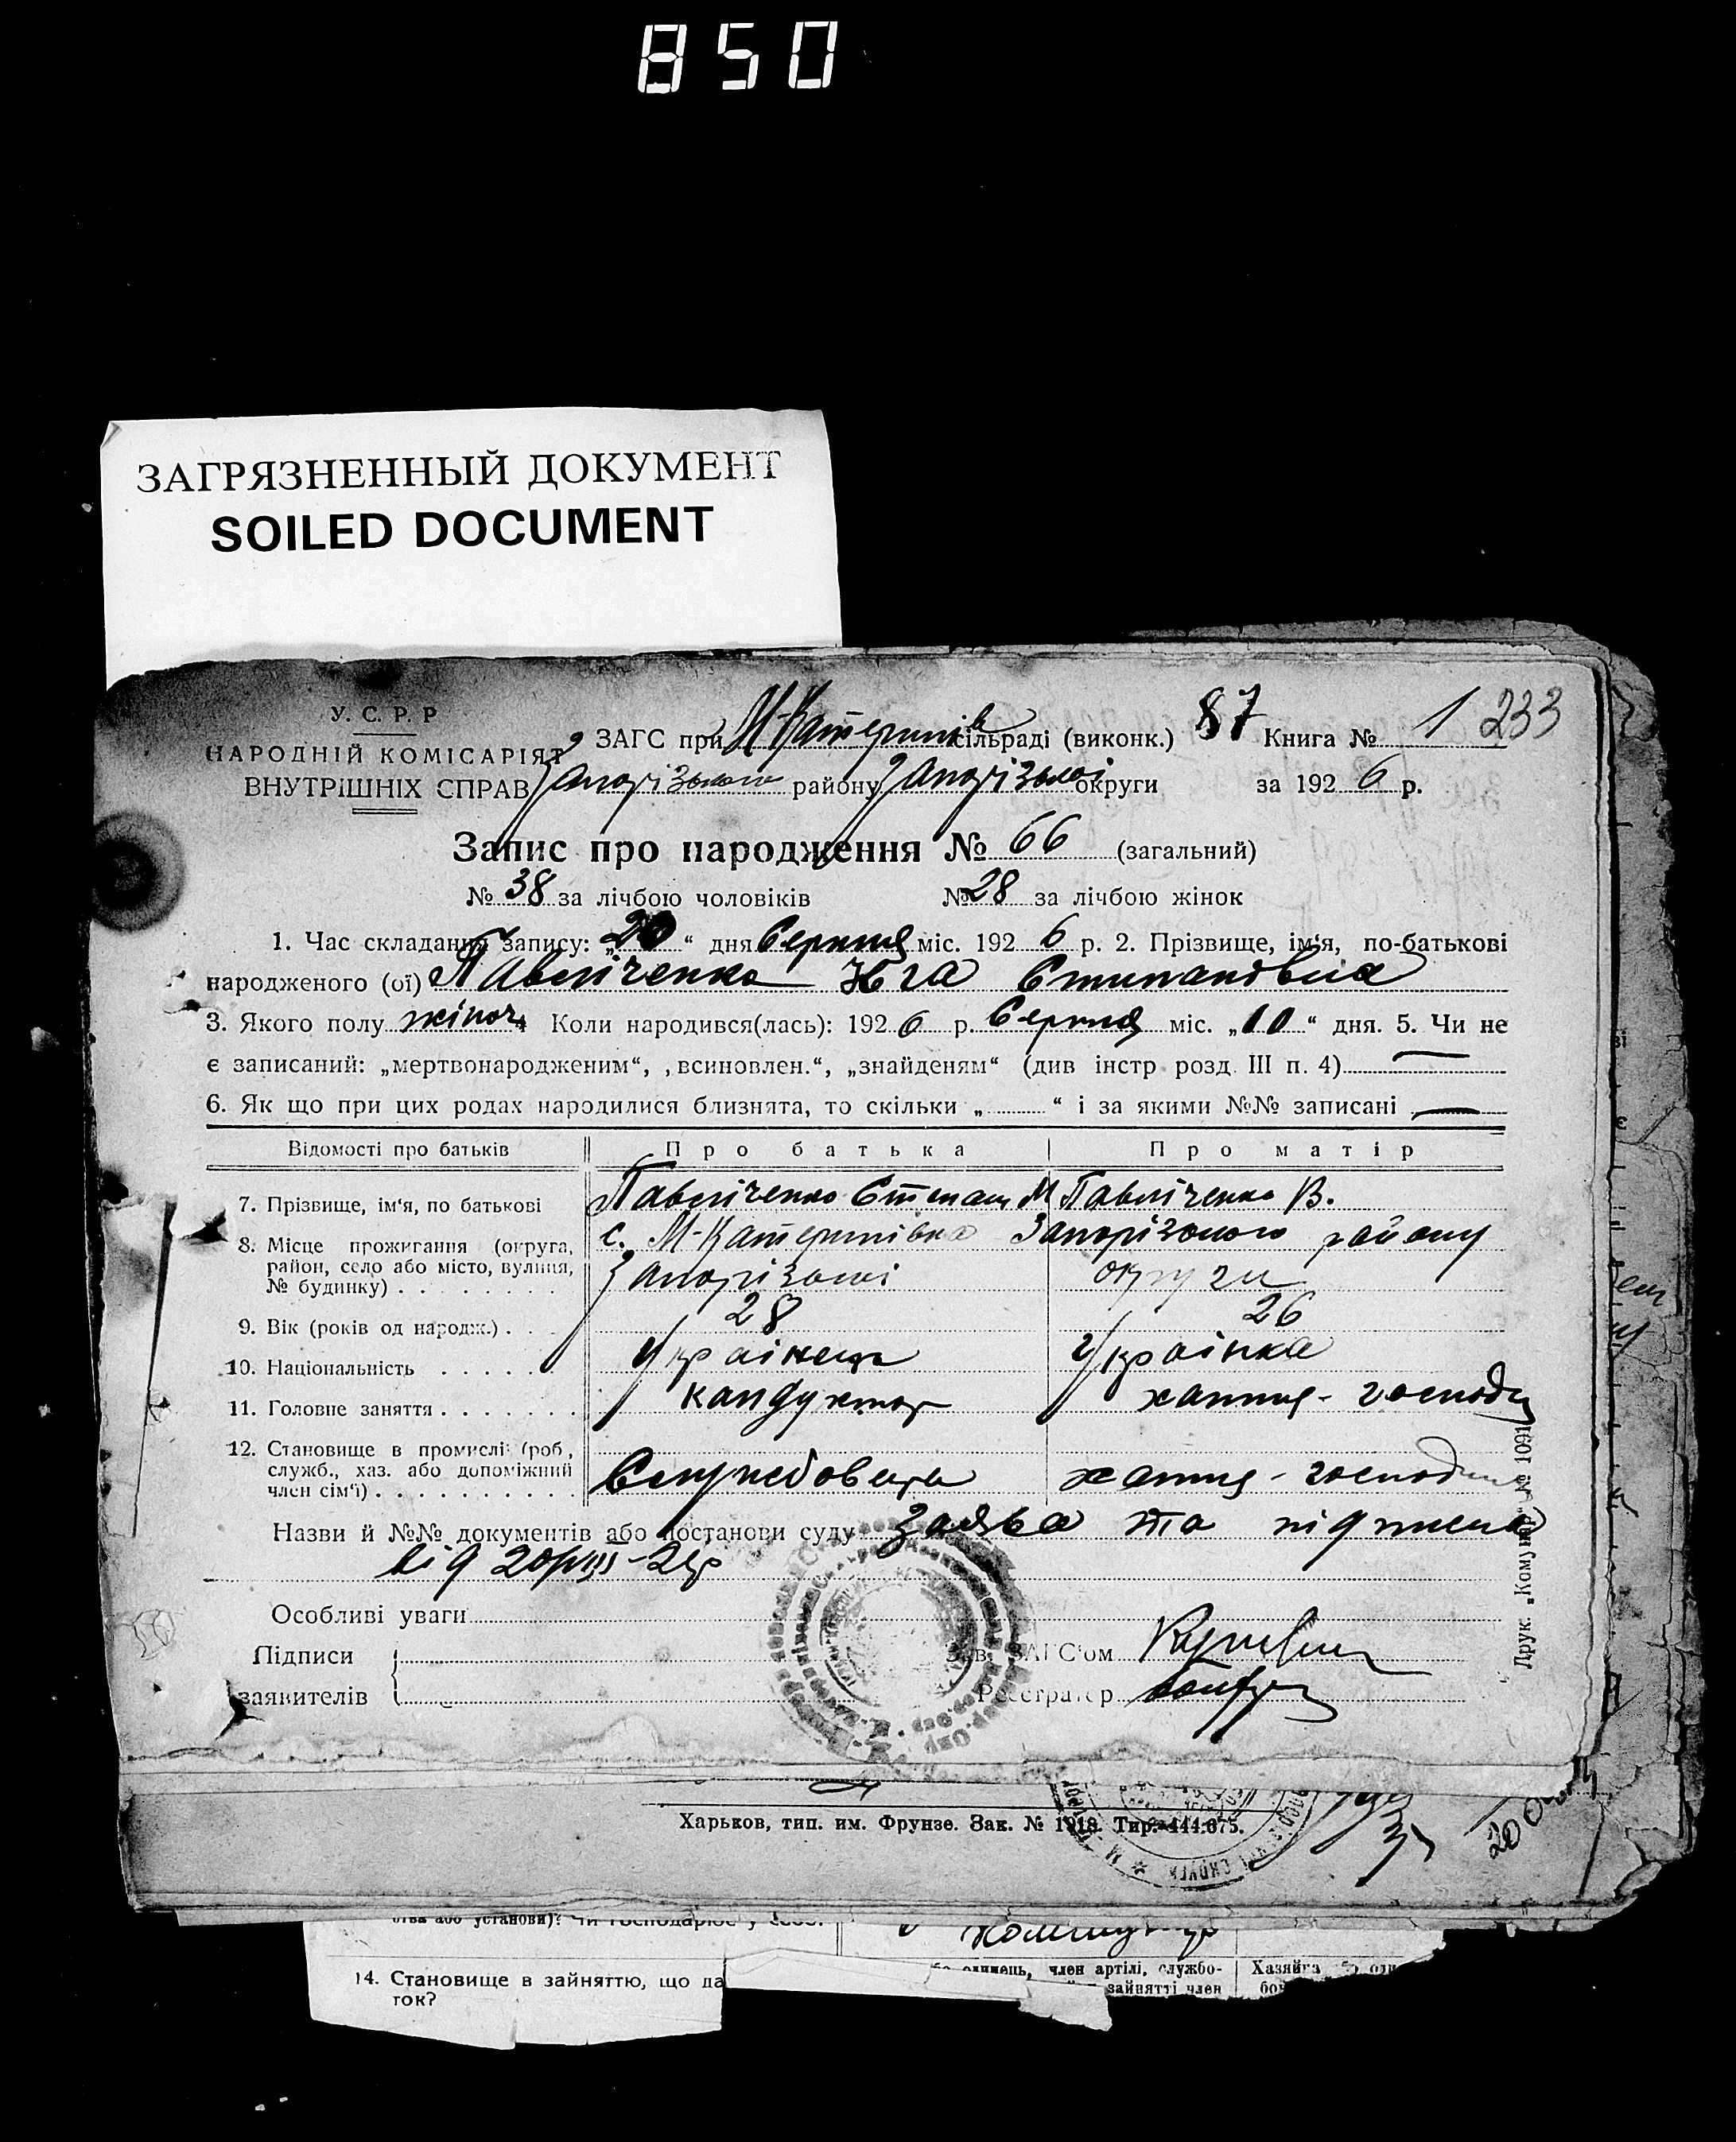 850
ЗАГРЯЗНЕННЫЙ ДОКУМЕНТ
SOILED DOCUMENT
У. С. Р. Р
НАРОДНІЙ КОМІСАРІЯТ
ВНУТРІШНІХ СПРАВ
ЗАГС при М-Катеринів сільраді (виконк.) 87 Книга № 1 233
Запорізького району Запорізької округи за 1926 р.
Запис про народження № 66 (загальний)
№ 38 за лічбою чоловіків № 28 за лічбою жінок
1. Час складання запису: „20“ дня Серпня міс. 1926 р. 2. Прізвище, ім'я, по-батькові
народженого (ої) Павліченко Юга Степанівна
3. Якого полу жіноч. Коли народився(лась): 1926 р. Серпня міс. „10“ дня. 5. Чи не
є записаний: „мертвонародженим“, „всиновлен.“, „знайденям“ (див інстр розд. III п. 4) —
6. Як що при цих родах народилися близнята, то скільки „......“ і за якими №№ записані —
Відомості про батьків Про батька Про матір
7. Прізвище, ім'я, по батькові Павліченко Степан М Павліченко В.
8. Місце прожигання (округа, район, село або місто, вулиця, № будинку) с. М-Катеринівка Запорізького району
Запорізької округи
9. Вік (років од народж.) 28 26
10. Національність Українець Українка
11. Головне заняття кандуктор хатня-господ
12. Становище в промислі (роб., служб., хаз. або допоміжний член сім'ї) Службовець хатня-господ
Назви й №№ документів або постанови суду Заява та підписка
від 20/VIII-26р
Особливі уваги
Підписи
заявителів
Зав. ЗАГС'ом
Реєстратор
Друк. „Комунар“ № 1091
Харьков, тип. им. Фрунзе. Зак. № 1918. Тир. 444.675.
ства або установи)? Чи господарює у себе.
14. Становище в зайняттю, що да
ток?
член артілі, службо-
зайнятті член
Хазяйка